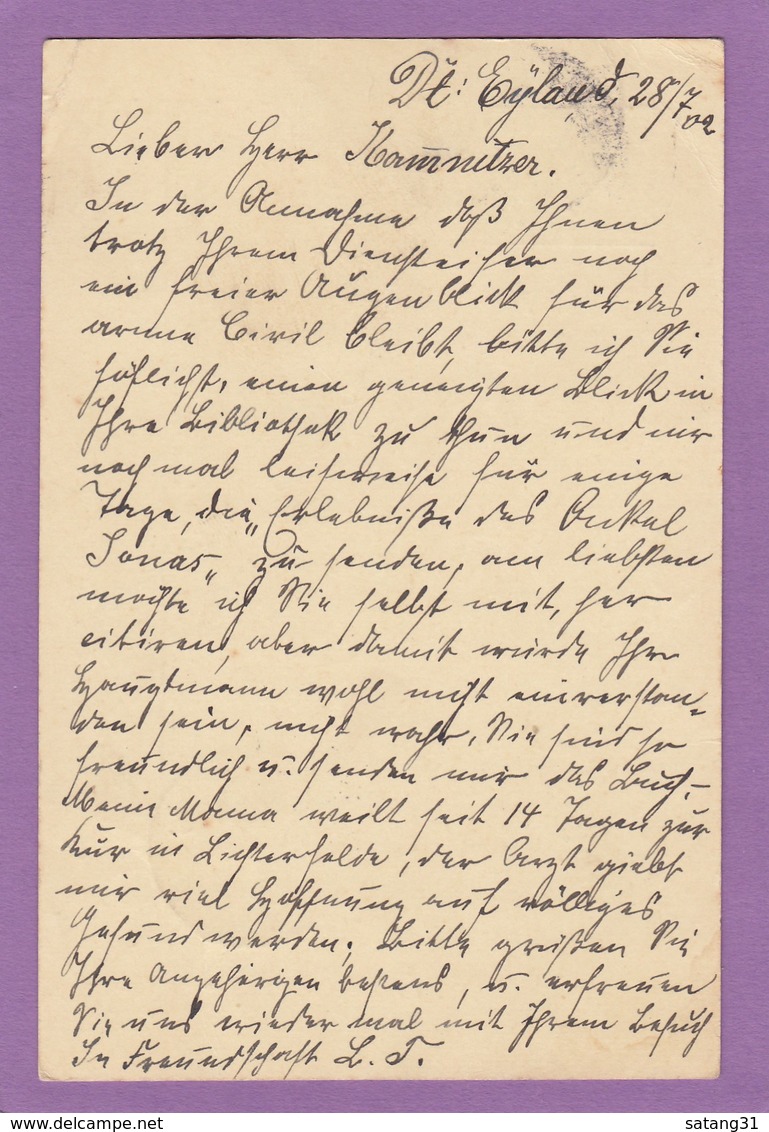 Dt: Eylau d. 28/7 02
Lieber Herr Kamnitzer.
In der Annahme daß Ihnen
trotz Ihrem Diensteifer noch
ein freier Augenblick für das
arme Civil bleibt, bitte ich Sie
höflichst, einen geneigten Blick in
Ihre Bibliothek zu thun und mir
noch mal leihweise für einige
Tage, die „Erlebniße des Onkel
Jonas„ zu senden, am liebsten
möchte ich Sie selbst mit, her
citiren, aber damit würde Ihr
Hauptmann wohl nicht einverstan=
den sein, nicht wahr, Sie sind so
freundlich u. senden mir das Buch,-
Meine Mama weilt seit 14 Tagen zur
Kur in Lichterfelde, der Arzt giebt
mir viel Hoffnung auf völliges
Gesundwerden; Bitte grüßen Sie
Ihre Angehörigen bestens, u. erfreuen
Sie uns wieder mal mit Ihrem Besuch
In Freundschaft L. T.
satang31